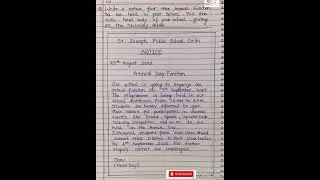 Write a notice for the Annual Function
to be held in your School. You are
the head boy of your school giving
all the necessary details.
St. Joseph Public School, Delhi
NOTICE
25th August, 2022
Annual Day Function
Our school is going to organize an
annual function on 7th September, 2022.
The programme is being held in our
school Auditorium from 10 AM to 2 PM.
Students are hereby informed to give
their names to participate in various
events like Dance, Speech,
Dancing Competition and so on to be
held on the Annual Day.
Interested students from each class should
submit their names to their class teacher
by 1st September, 2022. For further
inquiry contact the undersigned.
(Head Boy)
SUBSCRIBE